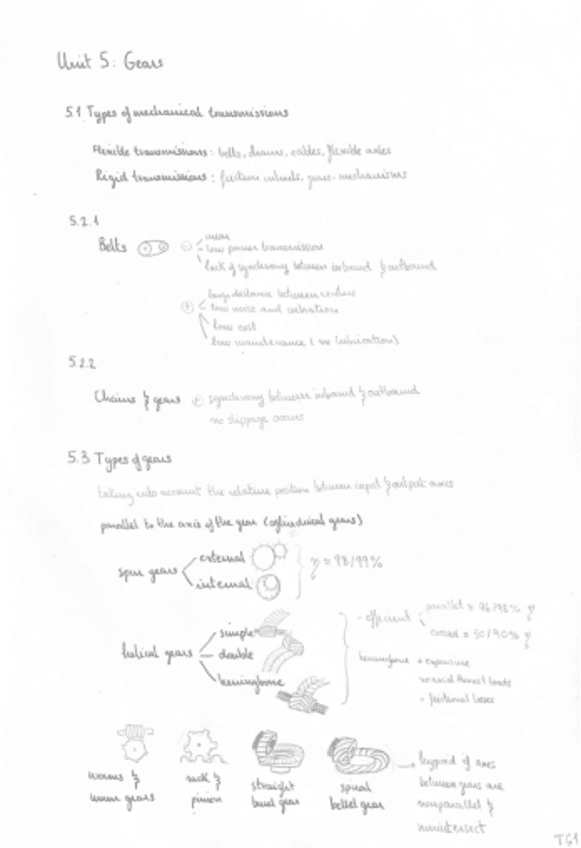 Unit 5: Gears
5.1 Types of mechanical transmissions
Flexible transmissions: belts, chains, cables, flexible axles
Rigid transmissions: friction wheels, gears mechanisms
5.2.1
Belts ⊖ wear
low power transmission
lack of synchrony between inbound & outbound
⊕ large distance between
low noise and vibration
low cost
low maintenance (no lubrication)
5.2.2
Chains & gears ⊕ synchrony between inbound & outbound
no slippage occurs
5.3 Types of gears
taking into account the relative position between input & output axes
parallel to the axis of the gear (cylindrical gears)
spur gears
external
internal
η ≈ 98/99%
helical gears
simple
double
herringbone
- efficient
parallel ≈ 96/98% η
crossed ≈ 50/90% η
herringbone + expensive
no axial thrust loads
- frictional losses
worms &
worm gears
rack &
pinion
straight
bevel gear
spiral
bevel gear
→ hypoid if axes
between gears are
nonparallel &
nonintersect
TG1